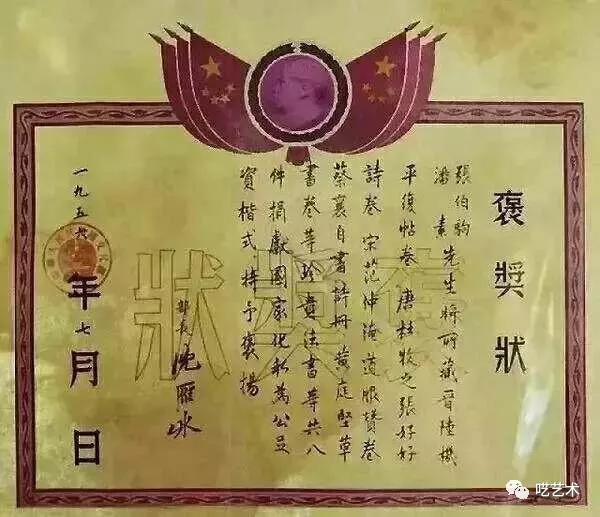 褒獎狀
張伯駒
潘素
先生將所藏晉陸機
平復帖卷唐杜牧之張好好
詩卷宋范仲淹道服贊卷
蔡襄自書詩冊黃庭堅草
書卷等珍貴法書等共八
件捐獻國家化私為公足
資楷式特予褒揚
部長沈雁冰
一九五六年七月日
褒獎狀
呓艺术